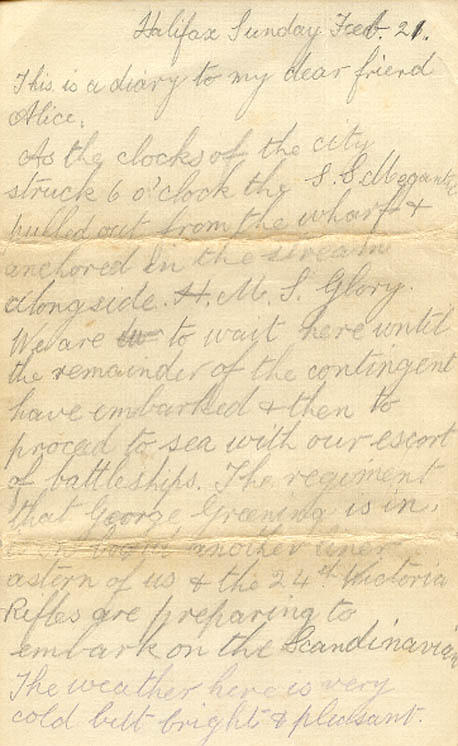 Halifax Sunday Feb. 21.
This is a diary to my dear friend
Alice,
As the clocks of the city
struck 6 o'clock the S.S. Megantic
pulled out from the wharf &
anchored in the stream
alongside H.M.S. Glory.
We are to wait here until
the remainder of the contingent
have embarked & then to
proceed to sea with our escort
of battleships. The regiment
that George Greening is in,
is on board another liner
astern of us & the 24th Victoria
Rifles are preparing to
embark on the Scandinavian
The weather here is very
cold but bright & pleasant.